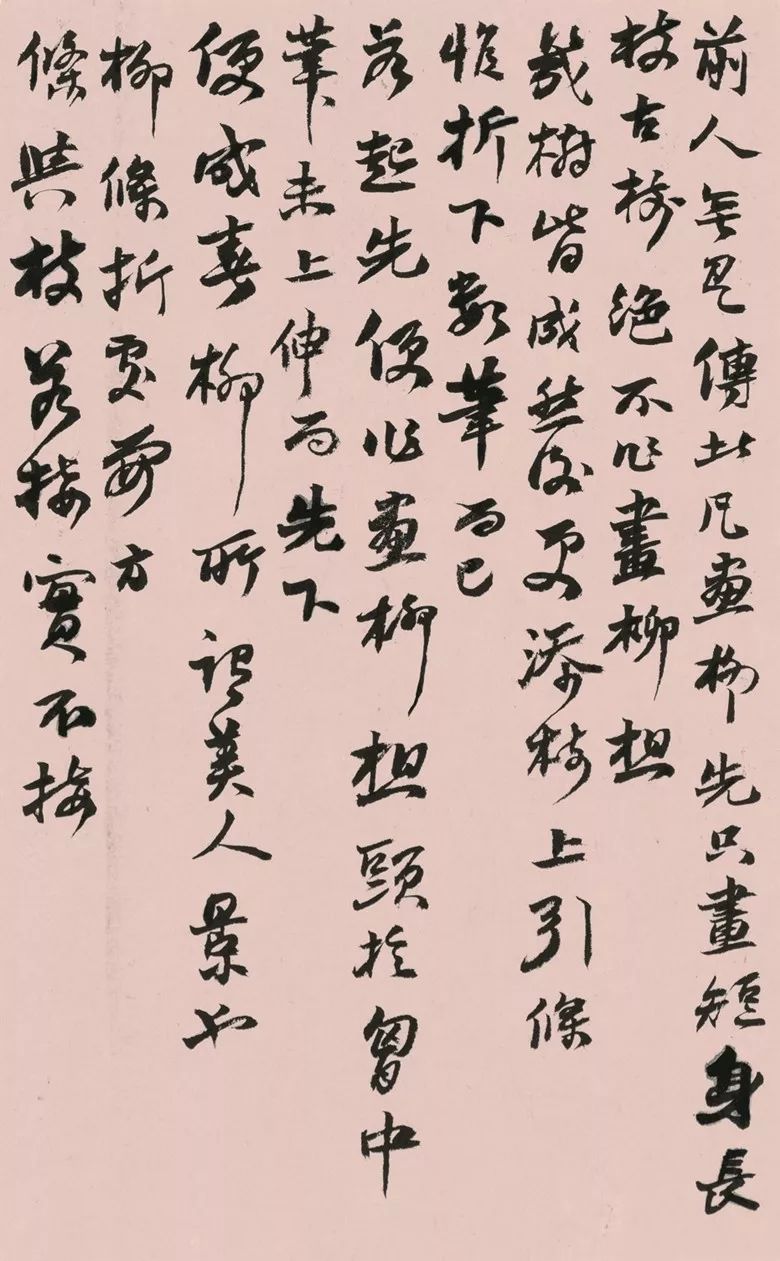 前人無不傳此凡畫柳先只畫短身長
枝古樹絕不作畫柳想
幾樹皆成然後更添枝上引條
惟折下數筆而已
若起先便作畫柳想頭於胷中
筆未上伸而先下
便成春柳所謂美人景也
柳條折處要方
條與枝若接實不接